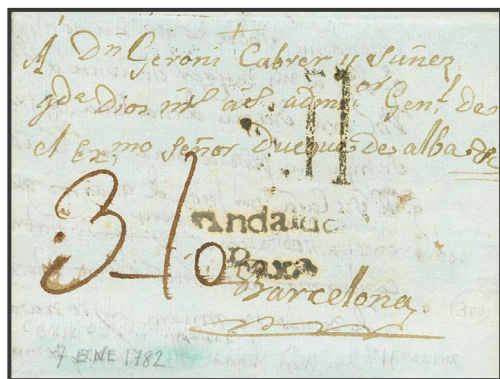 A Dn Geroni Cabrer y Suñez
gde Dios ms as admor Genl de
el Exmo señor Duque de alba &
Andaluc
Baxa
Barcelona
7 ENE 1782